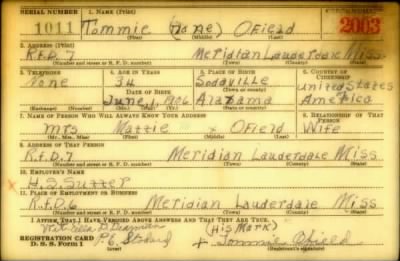 SERIAL NUMBER 1. NAME (Print) ORDER NUMBER
1011 Tommie (none) Ofield 2003
(First) (Middle) (Last)
2. ADDRESS (Print)
R.F.D. 7 Meridian Lauderdale Miss.
(Number and street or R. F. D. number) (Town) (County) (State)
3. TELEPHONE 4. AGE IN YEARS 5. PLACE OF BIRTH 6. COUNTRY OF CITIZENSHIP
None 34 United States
DATE OF BIRTH (Town or county)
June 1, 1906 Alabama America
(Exchange) (Number) (Mo.) (Day) (Yr.) (State or country)
7. NAME OF PERSON WHO WILL ALWAYS KNOW YOUR ADDRESS 8. RELATIONSHIP OF THAT PERSON
Mrs Mattie x Ofield Wife
(Mr., Mrs., Miss) (First) (Middle) (Last)
9. ADDRESS OF THAT PERSON
R.F.D. 7 Meridian Lauderdale Miss
(Number and street or R. F. D. number) (Town) (County) (State)
10. EMPLOYER'S NAME
x H. S.
11. PLACE OF EMPLOYMENT OR BUSINESS
R.F.D. 6 Meridian Lauderdale Miss
(Number and street or R. F. D. number) (Town) (County) (State)
I AFFIRM THAT I HAVE VERIFIED ABOVE ANSWERS AND THAT THEY ARE TRUE.
(His Mark)
REGISTRATION CARD
D. S. S. Form 1 P. C. + Tommie Ofield
(Registrant's signature)